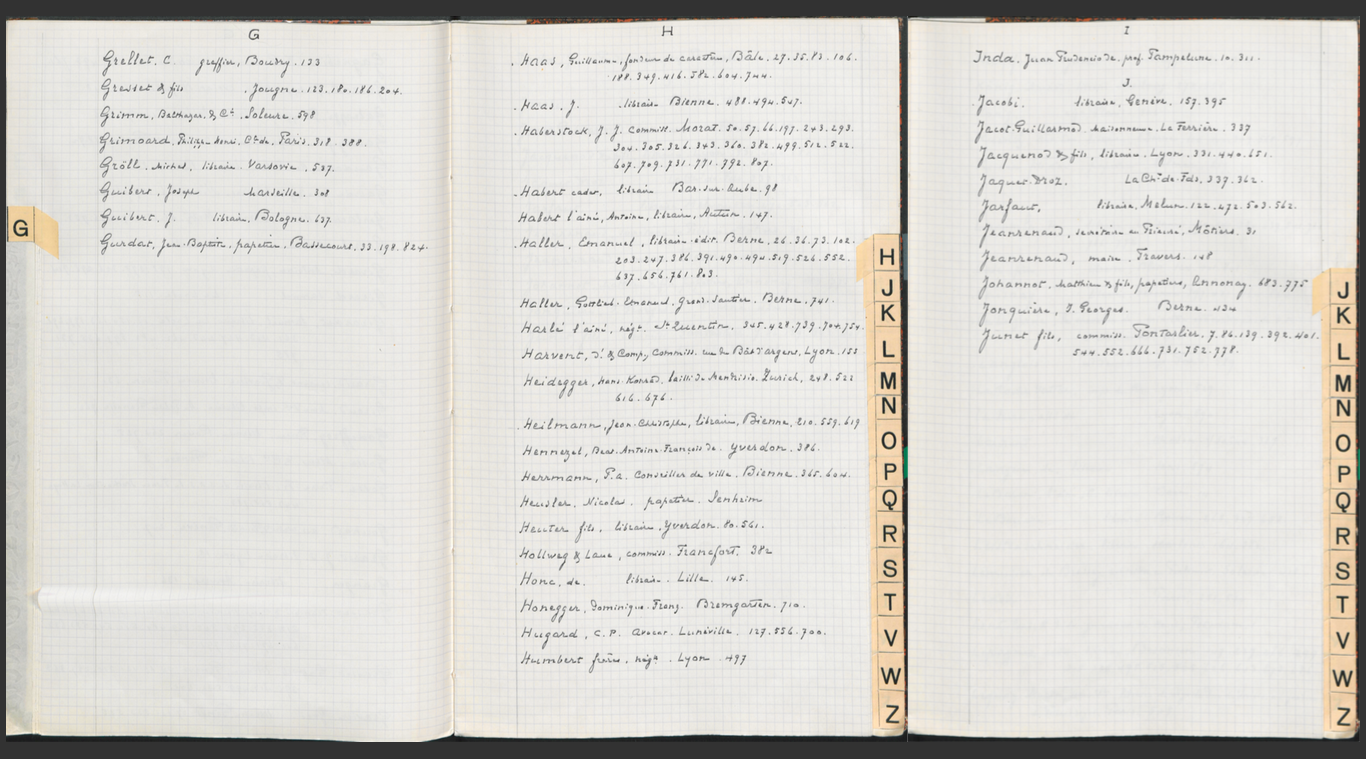 G
Grellet, C. greffier, Boudry. 133
Gresset & fils . Jougne. 123. 180. 186. 204.
Grimm, Balthazar, & Cie. Soleure. 598
Grimoard, Philipp-Henri, Cte de, Paris. 318. 388.
Gröll, Michel, libraire. Varsovie. 537.
Guibert, Joseph Marseille. 308
Guibert, J. libraire, Bologne. 637.
Gurdat, Jean-Baptiste, papetier, Bassecourt. 33. 198. 824.
G
H
Haas, Guillaume, fondeur de caractères, Bâle. 27. 35. 83. 106.
188. 349. 416. 582. 604. 744.
Haas, J. libraire Bienne. 488. 494. 547.
Haberstock, J. J. Commiss. Morat. 50. 57. 66. 197. 243. 293.
304. 305. 326. 343. 360. 382. 499. 512. 522.
607. 709. 731. 771. 792. 807.
Habert cadet, libraire Bar-sur-Aube. 98
Habert l'ainé, Antoine, libraire, Autun. 147.
Haller, Emanuel, libraire-édit. Berne, 26. 36. 73. 102.
203. 247. 386. 391. 490. 494. 519. 526. 552.
637. 656. 761. 803.
Haller, Gottlieb-Emanuel, Grand-Sautier, Berne. 741.
Harlé l'ainé, négt. St Quentin, 345. 428. 739. 704. 754.
Harvent, d' & Comp, Commiss. rue du Bât d'argent, Lyon. 153
Heidegger, Hans-Konrad, bailli de Mendrisio. Zurich, 248. 522
616. 676.
Heilmann, Jean-Christophe, libraire, Bienne, 210. 559. 619
Hennezel, Beat-Antoine-François de. Yverdon. 386.
Herrmann, P.a. Conseiller de ville. Bienne. 365. 604.
Heusler, Nicolas. papetier. Senheim
Heuter fils, libraire, Yverdon. 80. 561.
Hollweg & Laue, commiss. Francfort. 382
Honc, de. libraire. Lille. 145.
Honegger, Dominique-Franz. Bremgarten. 710.
Hugard, C. P. avocat. Lunéville. 127. 556. 700.
Humbert frères, négts. Lyon. 497
H
J
K
L
M
N
O
P
Q
R
S
T
V
W
Z
I
Inda. Juan Prudencio de, prof. Pampelune. 10. 311.
J.
Jacobi. libraire, Genève, 157. 395
Jacot-Guillarmod. Maisonneuve. La Ferrière. 337
Jacquenod & fils, libraire. Lyon. 331. 440. 651.
Jaquet-Droz. La Chx-de-Fds, 337. 362.
Jarfaut, libraire, Melun. 122. 472. 503. 562.
Jeanrenaud, secrétaire au Prieuré, Môtiers. 31
Jeanrenaud, maire. Travers. 148
Johannot, Matthieu & fils, papetiers, Annonay. 683. 775
Jonquière, J. Georges. Berne. 434
Junet fils, commiss. Pontarlier, 7. 86. 139. 392. 401.
544. 552. 666. 731. 752. 778.
J
K
L
M
N
O
P
Q
R
S
T
V
W
Z